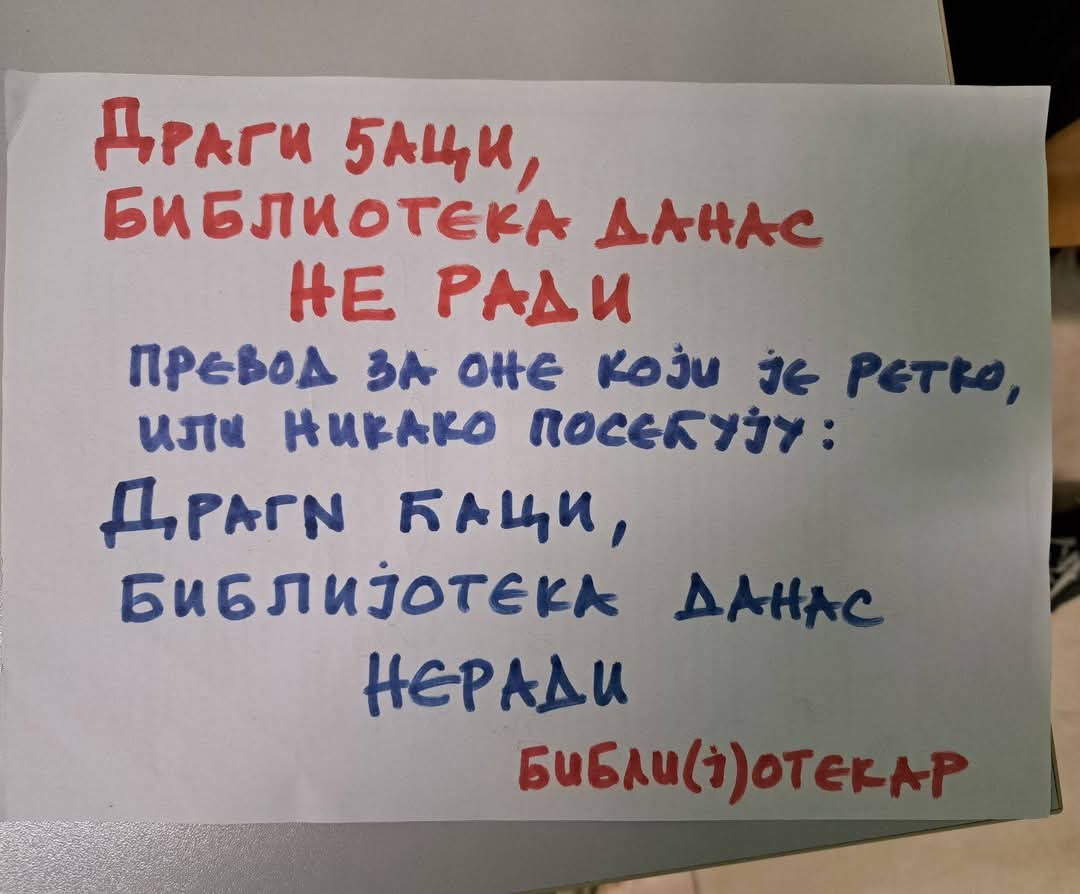 ДРАГИ ЂАЦИ,
БИБЛИОТЕКА ДАНАС
НЕ РАДИ
ПРЕВОД ЗА ОНЕ КОЈИ ЈЕ РЕТКО,
ИЛИ НИКАКО ПОСЕЋУЈУ:
ДРАГN ЋАЦИ,
БИБЛИЈОТЕКА ДАНАС
НЕРАДИ
БИБЛИ(Ј)ОТЕКАР